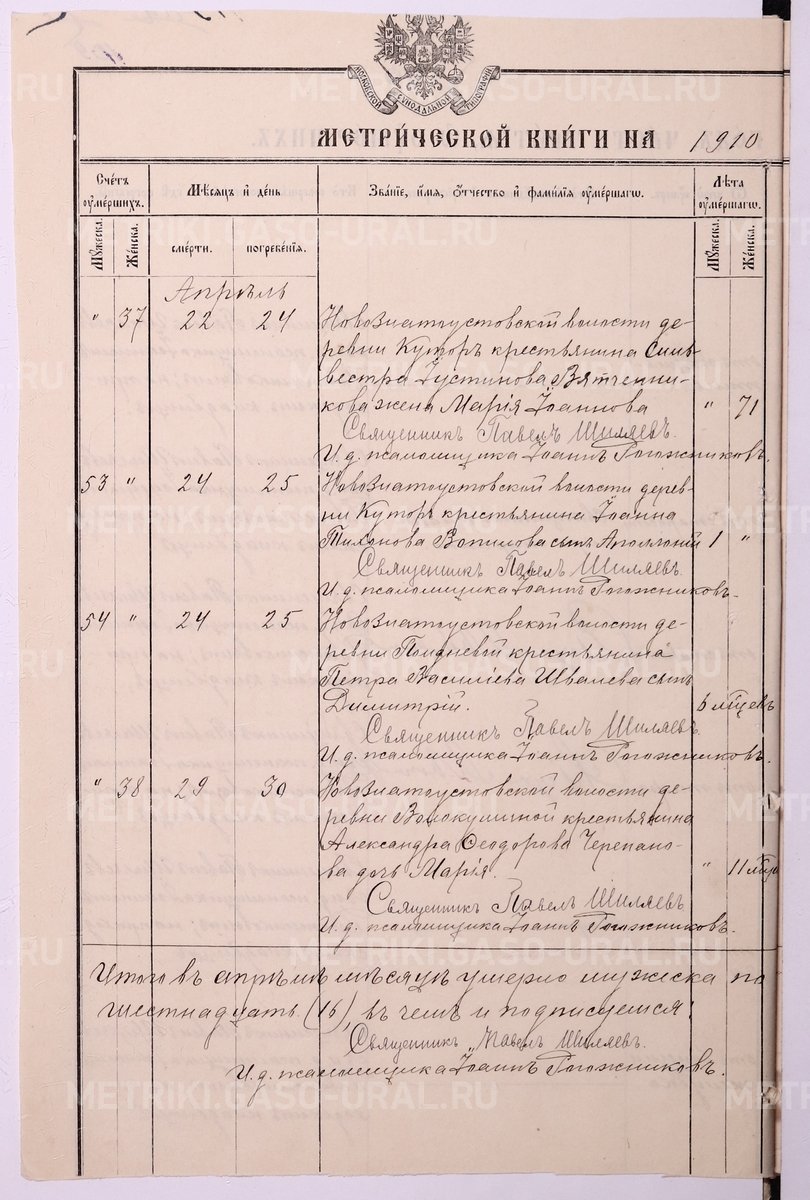 МОСКОВСКОЙ СИНОДАЛЬНОЙ ТИПОГРАФІИ
МЕТРИ́ЧЕСКОЙ КНИ́ГИ НА 1910
Сче́тъ ᲂуме́ршихъ. Мѣ́сяцъ и де́нь Зва́нїе, и́мя, о́тчество и фами́лїя ᲂуме́ршагѡ. Лѣ́та ᲂуме́ршагѡ.
Му́жеска. Же́нска. сме́рти. погребе́нїя. Му́жеска. Же́нска.
Апрѣль
" 37 22 24 Новозлатоустовской волости де-
ревни Куторъ крестьянина Силь-
вестра Іустинова Вятченни-
кова жена Марія Іоаннова " 71
Священникъ Павелъ Шиляевъ.
И. д. псаломщика Іоаннъ Рогожниковъ.
53 " 24 25 Новозлатоустовской волости дерев-
ни Куторъ крестьянина Іоанна
Тихонова Вопилова сынъ Аполлоній 1 "
Священникъ Павелъ Шиляевъ.
И. д. псаломщика Іоаннъ Рогожниковъ.
54 " 24 25 Новозлатоустовской волости де-
ревни крестьянина
Петра Василіева Швалева сынъ
Димитрій. 6 мѣцевъ
Священникъ Павелъ Шиляевъ.
И. д. псаломщика Іоаннъ Рогожниковъ.
" 38 29 30 Новозлатоустовской волости де-
ревни Волокушиной крестьянина
Александра Ѳеодорова Черепано-
ва дочь Марія. " 11 мѣце
Священникъ Павелъ Шиляевъ
И. д. псаломщика Іоаннъ Рогожниковъ.
Итого въ апрѣлѣ мѣсяцѣ умерло мужеска по
шестнадцать (16), въ чемъ и подписуемся:
Священникъ Павелъ Шиляевъ.
И. д. псаломщика Іоаннъ Рогожниковъ.
METRIKI.GASO-URAL.RU